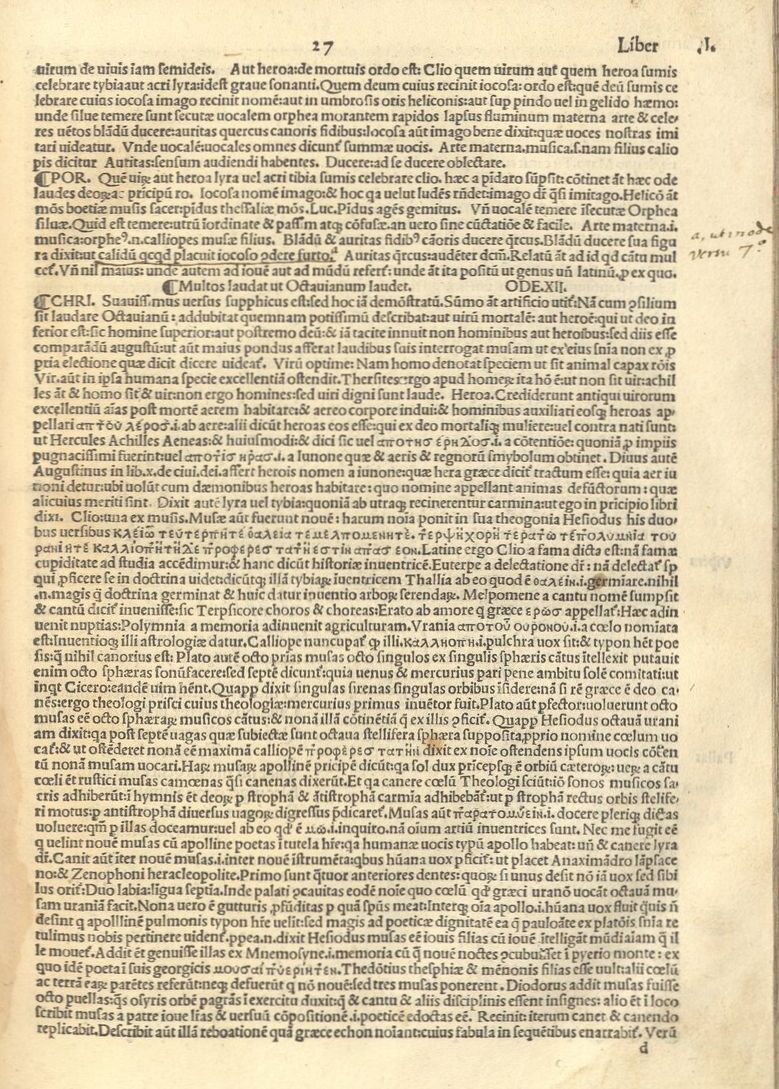 27 Liber .I.
uirum de uiuis iam semideis. Aut heroa: de mortuis ordo est: Clio quem uirum aut quem heroa sumis
celebrare tybia aut acri lyra: idest graue sonanti. Quem deum cuius recinit iocosa: ordo est: quē deū sumis ce
lebrare cuius iocosa imago recinit nomē: aut in umbrosis oris heliconis: aut sup pindo uel in gelido hæmo:
unde siluæ temere sunt secutæ uocalem orphea morantem rapidos lapsus fluminum materna arte & cele/
res uētos blādū ducere: auritas quercus canoris fidibus: Iocosa aūt imago bene dixit: quæ uoces nostras imi
tari uideatur. Vnde uocalē: uocales omnes dicunt̄ summæ uocis. Arte materna. musica. s. nam filius calio
pis dicitur Auritas: sensum audiendi habentes. Ducere: ad se ducere oblectare.
¶POR. Quē uirꝫ aut heroa lyra uel acri tibia sumis celebrare clio. hæc a pidaro sūpsit: cōtinet āt hæc ode
laudes deoꝝ ac pricipū ro. Iocosa nomē imago: & hoc qa uelut ludēs rñdet: imago dr̄ qsi imitago. Helicō āt
mōs boetiæ musis sacer: pidus thessaliæ mōs. Luc. Pidus agēs gemitus. Vñ uocalē temere isecutæ Orphea
siluæ. Quid est temere: utrū iordinate & passim atq; cōfusæ. an uero sine cūctatiōe & facile. Arte materna. i.
musica: orpheꝰ. n. calliopes musæ filius. Blādū & auritas fidibꝰ cāoris ducere qrcus. Blādū ducere sua figu
ra dixit: ut calidū qcqd placuit iocoso ꝯdere furto. Auritas qrcus: audēter dcm̄. Relatū āt ad id qd cātu mul
cet. Vñ nil maius: unde autem ad iouē aut ad mūdū refert̄: unde āt ita positū ut genus unū latinū. p ex quo.
¶Multos laudat ut Octauianum laudet. ODE.XII.
¶CHRI. Suauiss. mus uersus supphicus est: sed hoc iā demōstratū. Sūmo āt artificio utit̄: Nā cum ꝯsilium
sit laudare Octauianū: addubitat quemnam potissimū describat: aut uirū mortalē: aut heroē: qui ut deo in
ferior est: sic homine superior: aut postremo deū: & iā tacite innuit non hominibus aut heroibus: sed diis esse
comparādū augustū: ut aūt maius pondus afferat laudibus suis interrogat musam ut ex eius snia non ex ꝓ
pria electione quæ dicit dicere uideat̄. Virū optime: Nam homo denotat speciem ut sit animal capax rōis
Vir. aūt in ipsa humana specie excellentiā ostendit. Thersites: ergo apud homeꝝ ita hō ē: ut non sit uir: achil
les āt & homo sit & uir: non ergo homines: sed uiri digni sunt laude. Heroa. Crediderunt antiqui uirorum
excellentiū aīas post mortē aerem habitare: & aereo corpore indui: & hominibus auxiliari eosq; heroas ap/
pellari απτου λεροσ. i. ab aere: alii dicūt heroas eos esse: qui ex deo mortaliq; muliere: uel contra nati sunt:
ut Hercules Achilles Aeneas: & huiusmodi: & dici sic uel αποτησ ερηλοσ. i. a cōtentiōe: quoniā ꝓ impiis
pugnacissimi fuerint: uel αποτισ ηρασ. i. a Iunone quæ & aeris & regnorū smybolum obtinet. Diuus autē
Augustinus in lib. x. de ciui. dei. affert herois nomen a iunone: quæ hera græce dicit̄ tractum esse: quia aer iu
noni detur: ubi uolūt cum dæmonibus heroas habitare: quo nomine appellant animas defūctorum: quæ
alicuius meriti sint. Dixit autē lyra uel tybia: quoniā ab utraq; recinerentur carmina: ut ego in pricipio libri
dixi. Clio: una ex musis. Musæ aūt fuerunt nouē: harum noīa ponit in sua theogonia Hesiodus his duo/
bus uersibus
Latine ergo Clio a fama dicta est: nā famæ
cupiditate ad studia accēdimur: & hanc dicūt historiæ inuentricē. Euterpe a delectatione dr̄: nā delectat̄ sp
qui ꝓficere se in doctrina uidet: dicūtq; illā tybiaꝝ iuentricem Thallia ab eo quod ē θαλειν. i. germiare. nihil
. n. magis q̄ doctrina germinat & huic datur inuentio arboꝝ serendaꝝ. Melpomene a cantu nomē sumpsit
& cantū dicit̄ inuenisse: sic Terpsicore choros & choreas: Erato ab amore q græce ερωσ appellat̄. Hæc adin
uenit nuptias: Polymnia a memoria adinuenit agriculturam. Vrania αποτου ουρονου. i. a cœlo nomīata
est: Inuentioq; illi astrologiæ datur. Calliope nuncupat̄ qp illi. καλλιοπη. i. pulchra uox sit: & typon hēt poe
sis: q̄ nihil canorius est: Plato autē octo prias musas octo singulos ex singulis sphæris cātus itellexit putauit
enim octo sphæras sonū facere: sed septē dicunt̄: quia uenus & mercurius pari pene ambitu solē comitati: ut
inqt Cicero: eandē uim hēnt. Quapp dixit singulas sirenas singulas orbibus isidere: nā si rē græce ē deo ca/
nēs: ergo theologi prisci cuius theologiæ: mercurius primus inuētor fuit. Plato aūt pfector: uoluerunt octo
musas eē octo sphæraꝝ musicos cātus: & nonā illā cōtinētiā q̄ ex illis ꝯficit̄. Quapp Hesiodus octauā urani
am dixit: qa post septē uagas quæ subiectæ sunt octaua stellifera sphæra supposita, pprio nomine cœlum uo
cat̄: & ut ostēderet nonā eē maximā calliopē προφερεσ τατηι dixit ex noīe ostendens ipsum uocis cōcen
tū nonā musam uocari. Haꝝ musaꝝ apollinē pricipē dicūt: qa sol dux prīcepsq; ē orbiū cæteroꝝ: ueꝝ a cātu
cœli ēt rustici musas camœnas qsi canenas dixerūt. Et qa canere cœlū Theologi sciūt: iō sonos musicos sa/
cris adhiberūt: i hymnis ēt deoꝝ p strophā & ātistrophā carmia adhibebāt: ut p strophā rectus orbis stelife/
ri motus: p antistrophā diuersus uagoꝝ digressus pdicaret̄. Musas aūt παρατομυειν. i. docere pleriq; dictas
uoluere: qm̄ p illas doceamur: uel ab eo qd' ē μω. i. inquiro. nā oium artiū inuentrices sunt. Nec me fugit eē
q uelint nouē musas cū apolline poetas i tutela hr̄e: qa humanæ uocis typū apollo habeat: uñ & canere lyra
dr̄. Canit aūt iter nouē musas. i. inter nouē istrumēta: qbus hūana uox pficit̄: ut placet Anaximādro lāpsace
no: & Zenophoni heracleopolite. Primo sunt q̄tuor anteriores dentes: quoꝝ si unus desit nō iā uox sed sibi
lus orit̄: Duo labia: ligua septia. Inde palati ꝯcauitas eodē noīe quo cœlū qd' græci uranō uocāt octauā mu/
sam uraniā facit. Nona uero ē gutturis pfūditas p quā spūs meat: Interq; oīa apollo. i. hūana uox fluit q̄uis ñ
desint q apolllinē pulmonis typon hr̄e uelit: sed magis ad poeticæ dignitatē ea q̄ pauloāte ex platōis snīa re
tulimus nobis pertinere uident̄. ppea. n. dixit Hesiodus musas eē iouis filias cū iouē itelligāt mūdi aīam q̄ il
le mouet̄. Addit ēt genuisse illas ex Mnemosyne. i. memoria cū q̄ nouē noctes ꝯcubuisset i pyerio monte: ex
quo idē poeta i suis georgicis μουσαι πυεριητεν. Thedōtius thesphiæ & mēnonis filias esse uult: alii cœlū
ac terrā eaꝝ parētes referūt: neq; defuerūt q nō nouē: sed tres musas ponerent. Diodorus addit musas fuisse
octo puellas: q̄s osyris orbē pagrās i exercitu duxit: q̄ & cantu & aliis disciplinis essent insignes: alio ēt i loco
scribit musas a patre ioue līas & uersuū cōpositionē. i. poeticē edoctas eē. Recinit: iterum canet & canendo
replicabit. Describit aūt illā reboationē quā græce echon noīant: cuius fabula in sequētibus enarrabit̄. Verū
d
a, ut in ode
versu 7.°